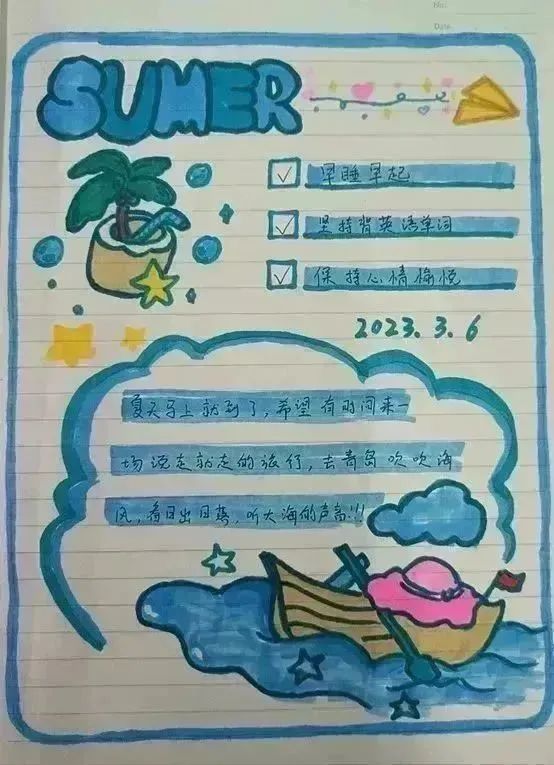 No:
Date
SUMER
早睡早起
坚持背英语单词
保持心情愉悦
2023.3.6
夏天马上就到了,希望有时间来一
场说走就走的旅行,去青岛吹吹海
风,看日出日落,听大海的声音!!!